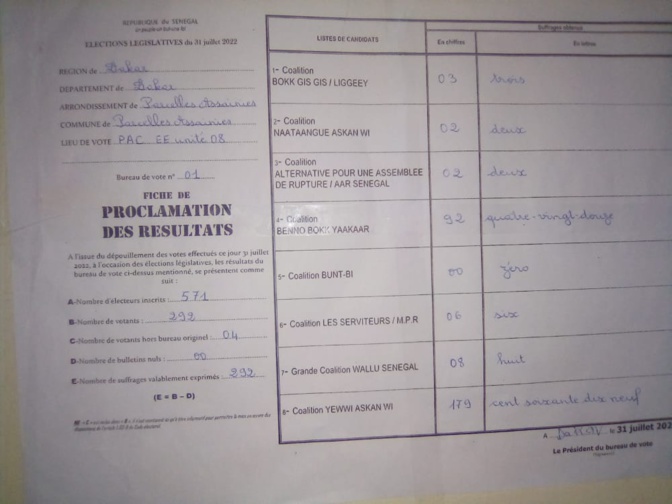 REPUBLIQUE du SENEGAL
ELECTIONS LEGISLATIVES du 31 juillet 2022
REGION de Dakar
DEPARTEMENT de Dakar
ARRONDISSEMENT de Parcelles Assainies
COMMUNE de Parcelles Assainies
LIEU DE VOTE PAC EE unité 08
Bureau de vote n° 01
FICHE DE
PROCLAMATION
DES RESULTATS
A l'issue du dépouillement des votes effectués ce jour 31 juillet
2022, à l'occasion des élections législatives, les résultats du
bureau de vote ci-dessus mentionné, se présentent comme
suit :
A-Nombre d'électeurs inscrits : 571
B-Nombre de votants : 292
C-Nombre de votants hors bureau originel : 04
D-Nombre de bulletins nuls : 00
E-Nombre de suffrages valablement exprimés : 292
(E = B - D)
LISTES DE CANDIDATS
Suffrages obtenus
En chiffres
En lettres
1- Coalition
BOKK GIS GIS / LIGGEEY
03
trois
2- Coalition
NAATAANGUE ASKAN WI
02
deux
3- Coalition
ALTERNATIVE POUR UNE ASSEMBLEE
DE RUPTURE / AAR SENEGAL
02
deux
4- Coalition
BENNO BOKK YAAKAAR
92
quatre-vingt-douze
5- Coalition BUNT-BI
00
zéro
6- Coalition LES SERVITEURS / M.P.R
06
six
7- Grande Coalition WALLU SENEGAL
08
huit
8- Coalition YEWWI ASKAN WI
179
cent soixante dix neuf
A Dakar le 31 juillet 202
Le Président du bureau de vote